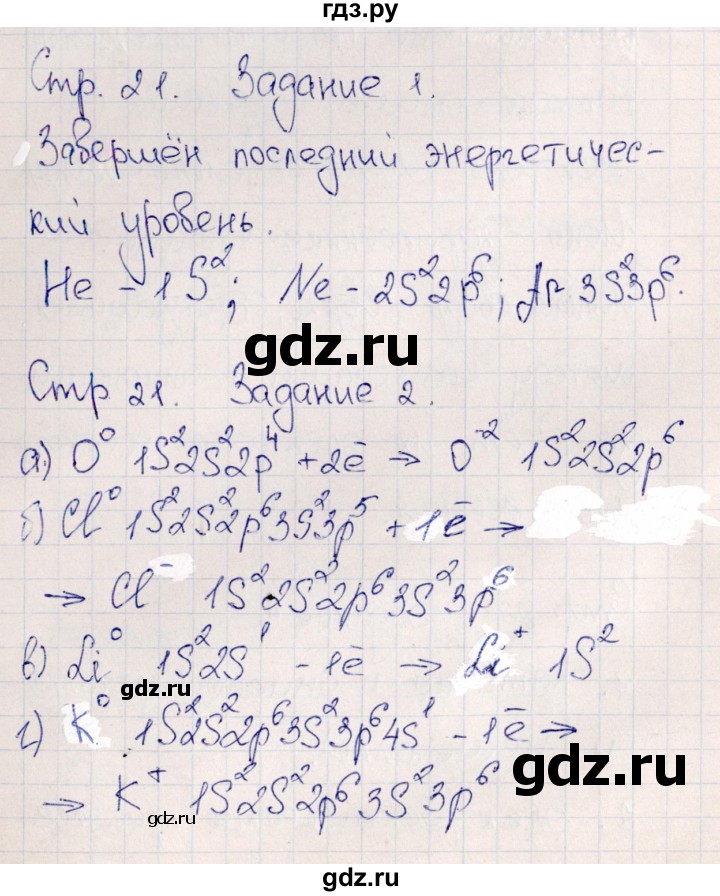 гдз.ру
Стр. 21. Задание 1.
Завершён последний энергетичес-
кий уровень.
He - 1S²; Ne - 2S²2p⁶; Ar 3S²3p⁶.
gdz.ru
Стр 21. Задание 2.
а) O⁰ 1S²2S²2p⁴ + 2ē → O⁻² 1S²2S²2p⁶
б) Cl⁰ 1S²2S²2p⁶3S²3p⁵ + 1ē →
→ Cl⁻ 1S²2S²2p⁶3S²3p⁶
в) Li⁰ 1S²2S¹ - 1ē → Li⁺ 1S²
gdz.ru
г) K⁰ 1S²2S²2p⁶3S²3p⁶4S¹ - 1ē →
gdz.ru
→ K⁺ 1S²2S²2p⁶3S²3p⁶
gdz.ru
gdz.ru